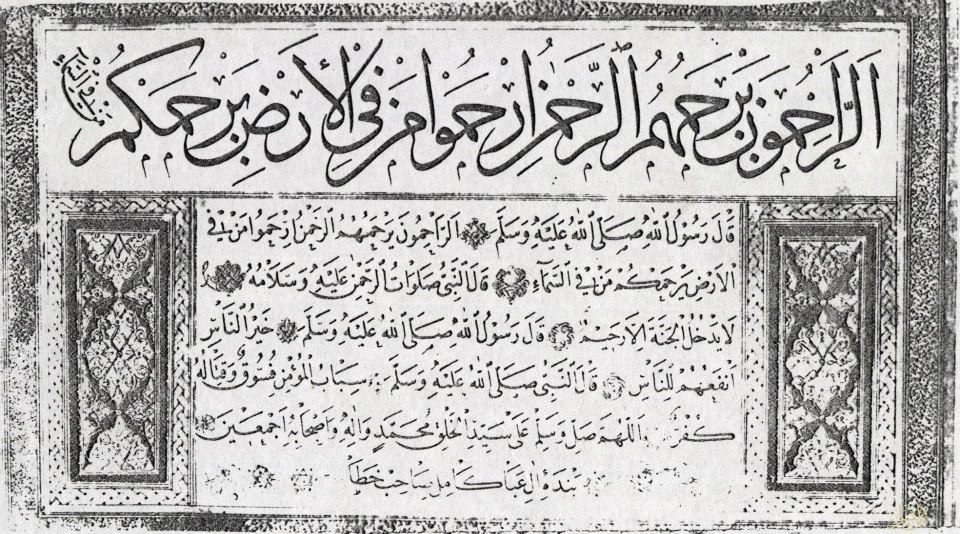 الراحمون يرحمهم الرحمن ارحموا من في الأرض يرحمكم من في السماء
قال رسول الله صلى الله عليه وسلم الراحمون يرحمهم الرحمن ارحموا من في
الارض يرحمكم من في السماء قال النبي صلوات الرحمن عليه وسلامه
لا يدخل الجنة الا رحيم قال رسول الله صلى الله عليه وسلم خير الناس
انفعهم للناس قال النبي صلى الله عليه وسلم سباب المؤمن فسوق وقتاله
كفر اللهم صل وسلم على سيد الخلق محمد واله واصحابه اجمعين
بنده ال عبا كامل صاحب خطا